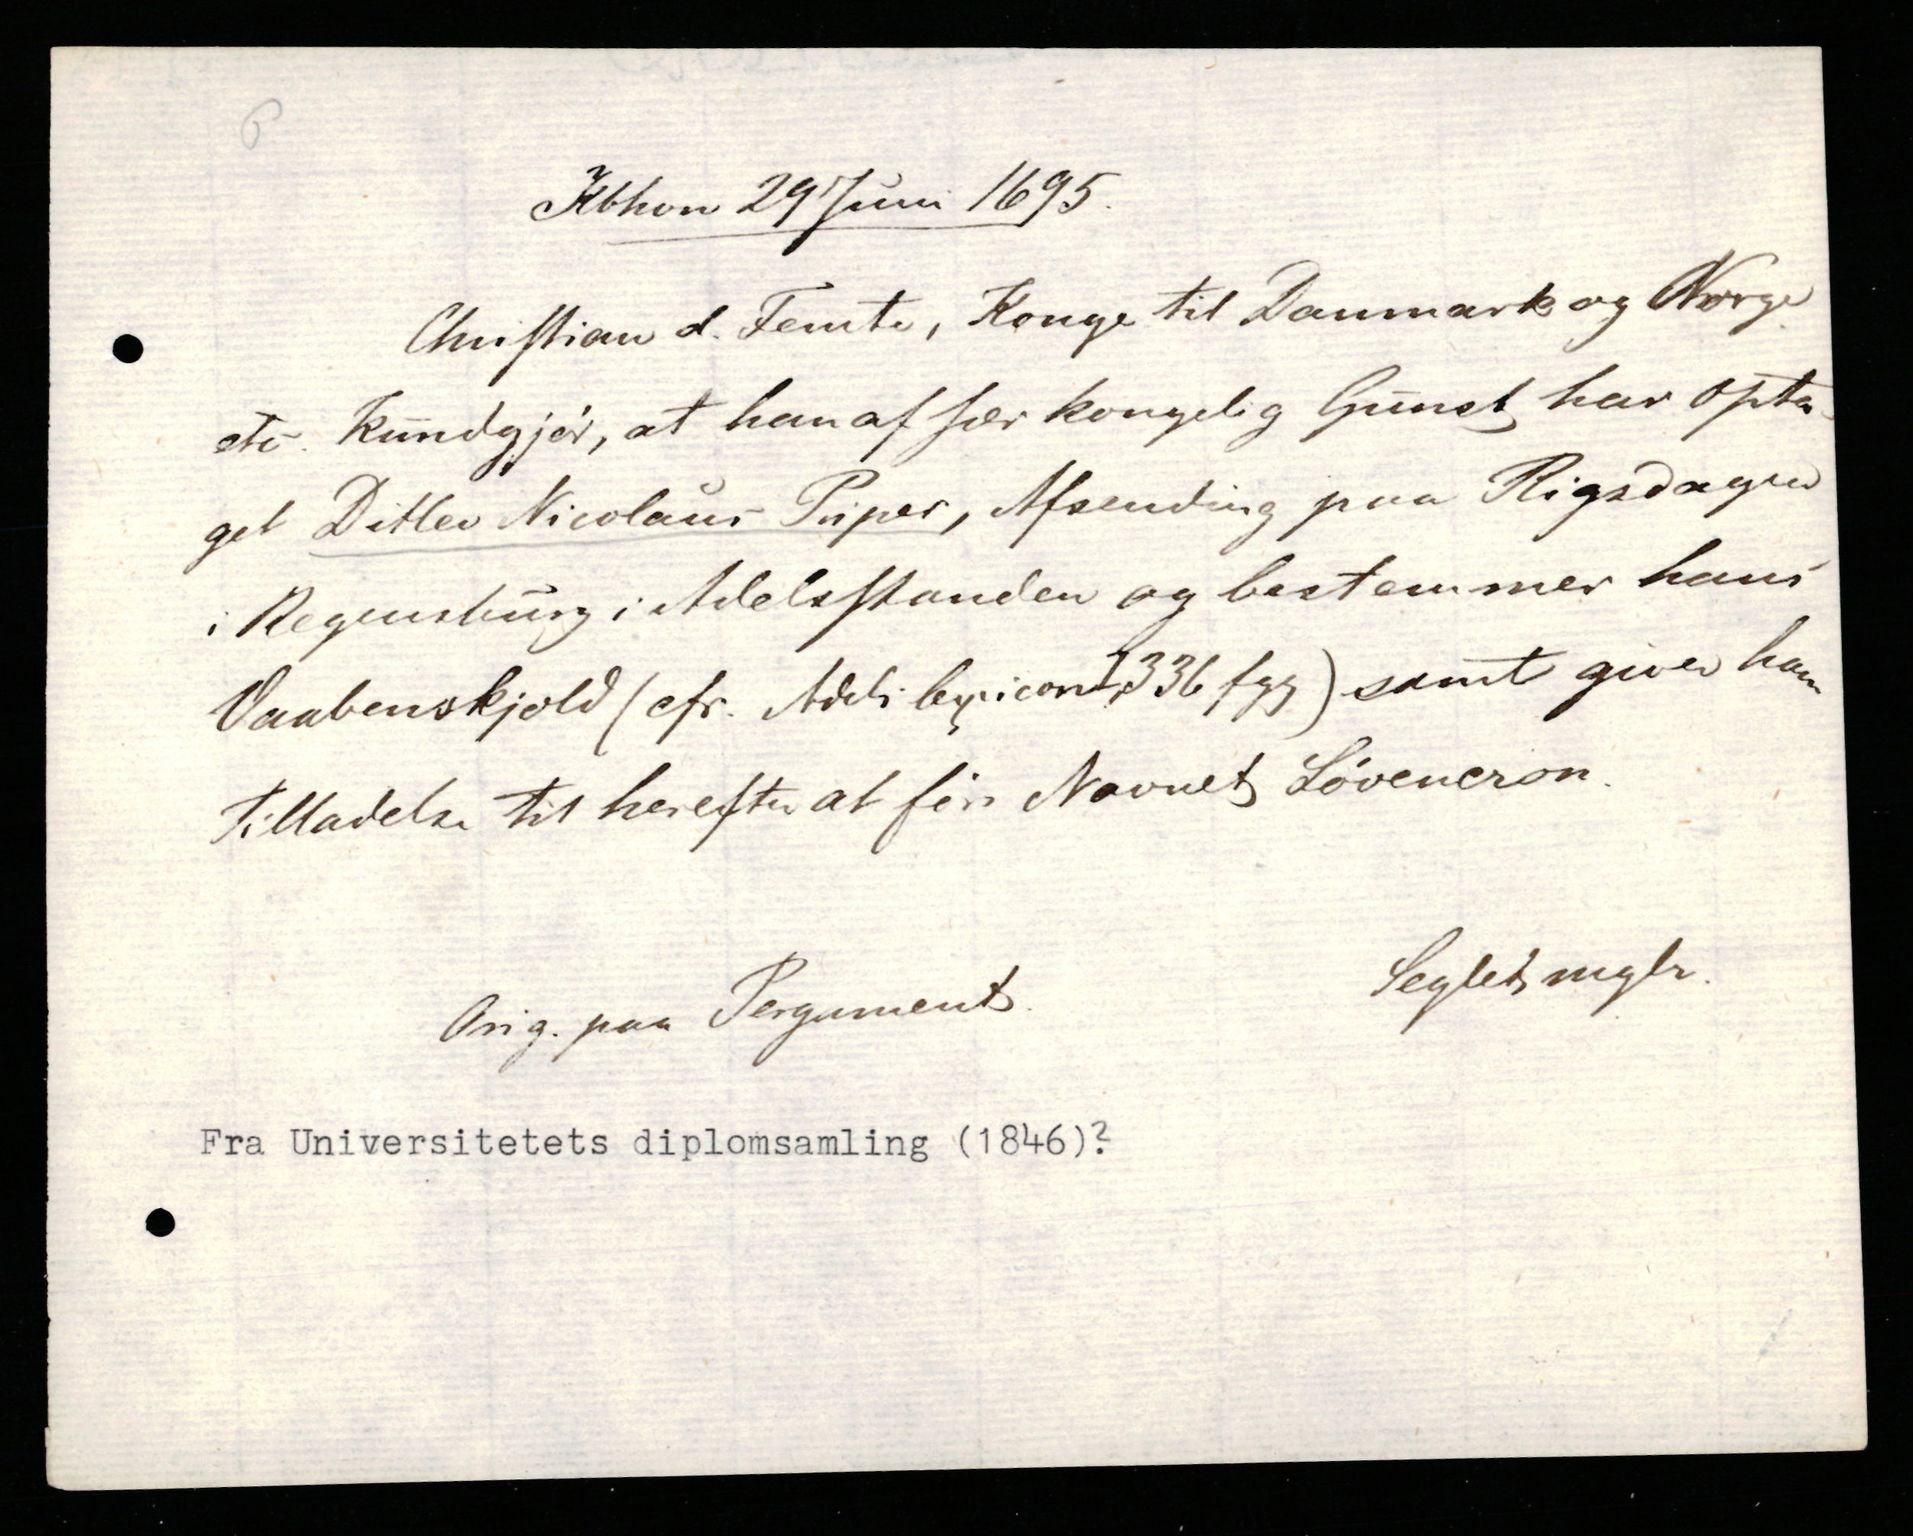 P
Kbhvn 29 Juni 1695.
Christian d. Femte, Konge til Danmark og Norge
etc. Kundgjør, at han af sær kongelig Gunst har opta-
get Ditlev Nicolaus Piper, Afsending paa Rigsdagen
i Regensburg i Adelsstanden og bestemmer hans
Vaabenskjold (cfr. Adels lexicon I, 336 fgg) samt giver ham
Tilladelse til herefter at føre Navnet Lövencron.
Orig. paa Pergament.
Seglet mglr.
Fra Universitetets diplomsamling (1846)?